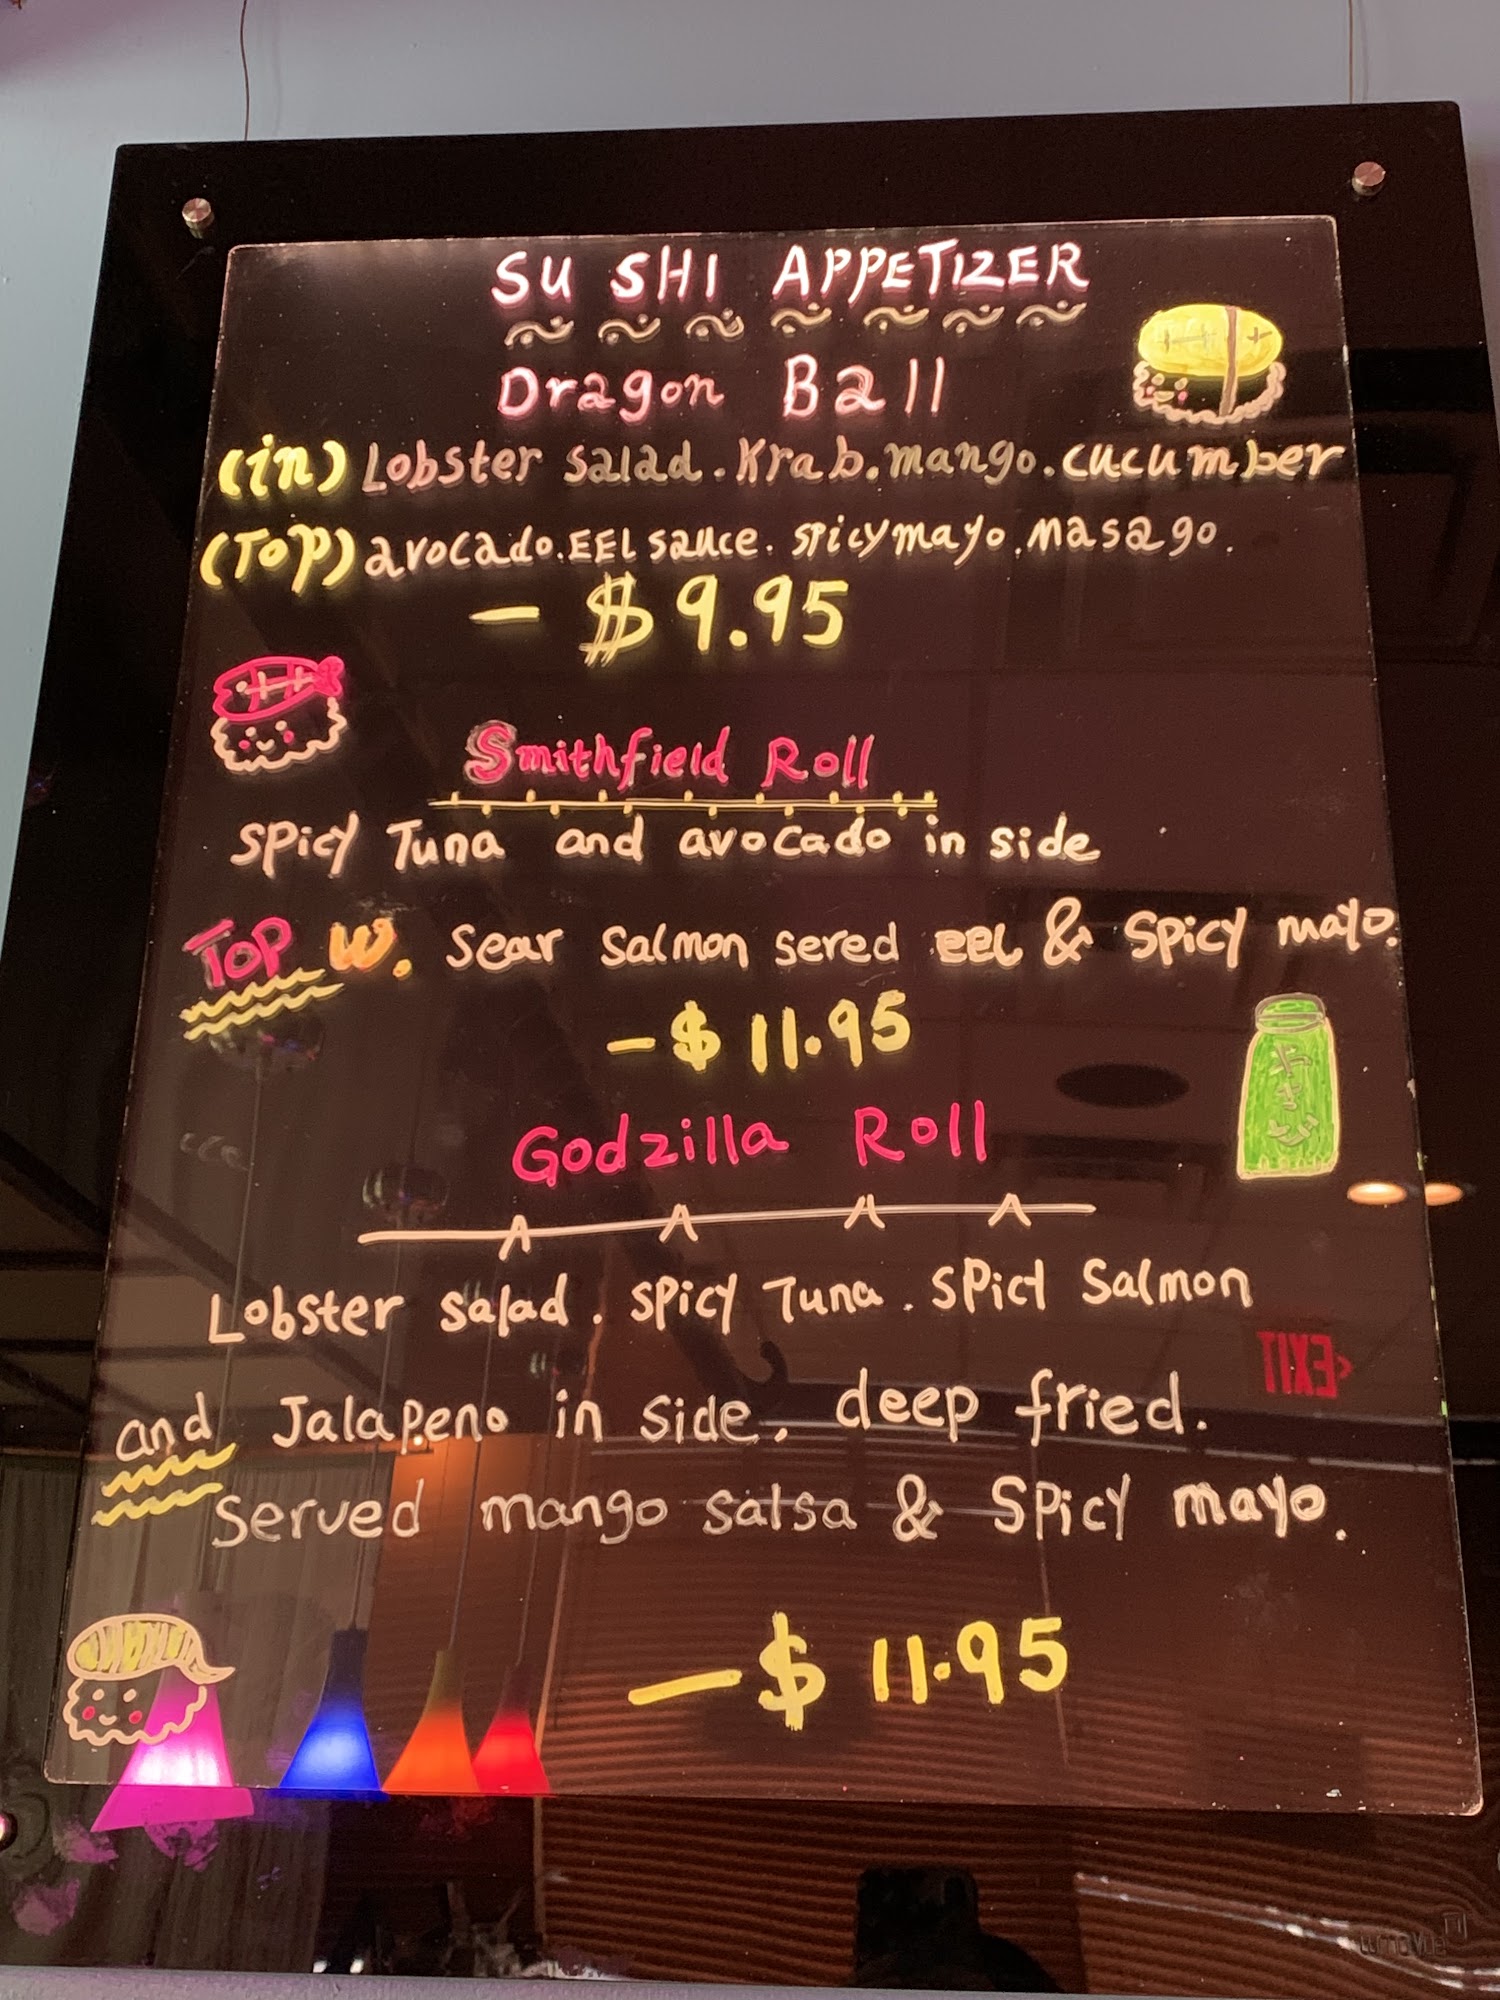 SUSHI APPETIZER
Dragon Ball
(in) Lobster salad. Krab. mango. cucumber
(Top) avocado. EEL sauce. spicy mayo. masago.
- $9.95
Smithfield Roll
spicy Tuna and avocado in side
TOP W. Sear salmon sered eel & spicy mayo.
- $11.95
Godzilla Roll
Lobster salad. spicy Tuna. spicy salmon
EXIT
and Jalapeno in side. deep fried.
served mango salsa & spicy mayo.
- $11.95